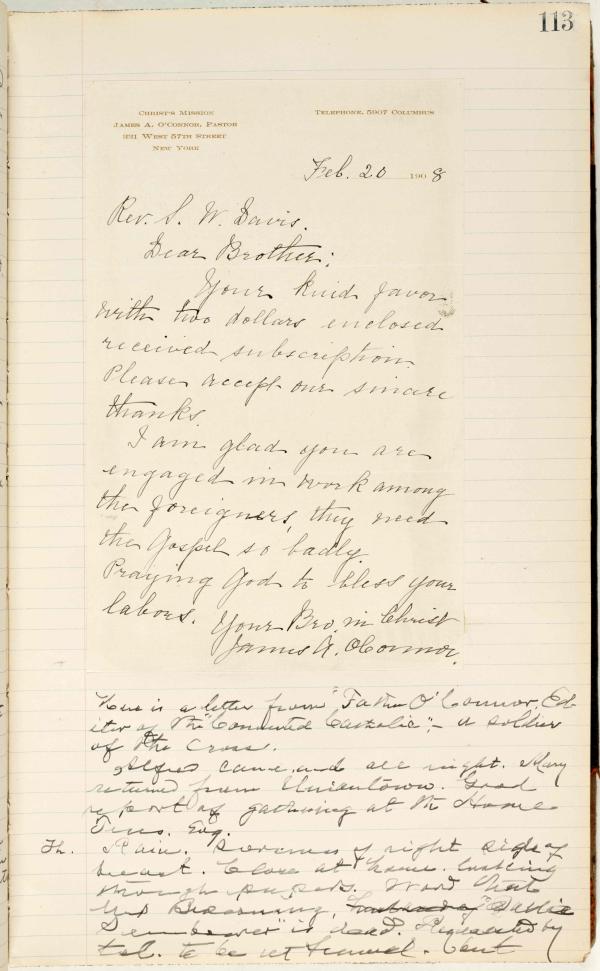 113
CHRIST'S MISSION
JAMES A. O'CONNOR, PASTOR
331 WEST 57TH STREET
NEW YORK
TELEPHONE, 5907 COLUMBUS
Feb. 20 1908
Rev. S. W. Davis.
Dear Brother:
Your kind favor
with two dollars enclosed
received subscription.
Please accept our sincere
thanks.
I am glad you are
engaged in work among
the foreigners, they need
the Gospel so badly.
Praying God to bless your
labors. Your Bro. in Christ
James A. O'Connor.
Here is a letter from "Father O'Connor, Ed-
itor of the "Converted Catholic", - a soldier
of the Cross.
Alfred came, and all right. Mary
returned from Uniontown. Good
report of gathering at the Home
Th. Rain. Soreness of right side of
breast. Close at home. Looking
through papers. Word that
Mrs
is dead. Requested by
tel. to be at funeral. Cent